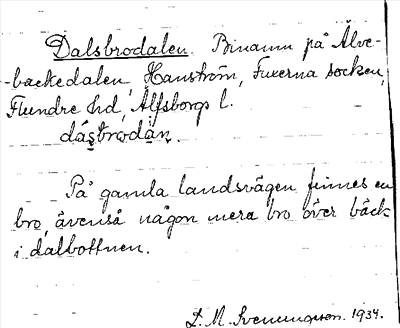 Dalsbrodalen. Binamn på Älve-
-backedalen, Hanström, Fuxerna socken,
Flundre hd, Älfsborgs l.
dásbrodàn.
På gamla landsvägen finnes en
bro, ävenså någon mera bro över bäck
i dalbottnen.
L. M. Svenungsson. 1934.